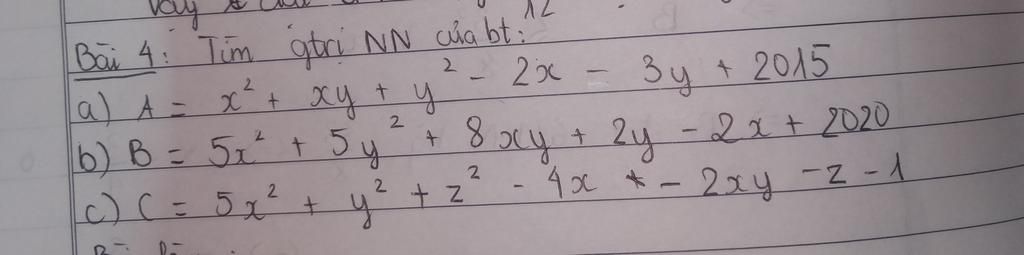 12
Bài 4: Tìm gtrị NN của bt:
a) A = x² + xy + y² - 2x - 3y + 2015
b) B = 5x² + 5y² + 8xy + 2y - 2x + 2020
c) C = 5x² + y² + z² - 4x - 2xy - z - 1